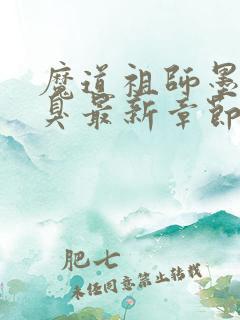 魔道祖师墨
臭最新章節
肥七
未经同意禁止转载